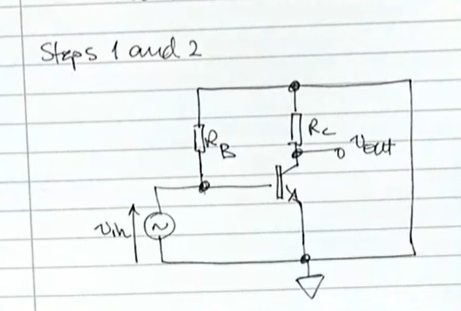 Steps 1 and 2
RC
RB
vout
vin